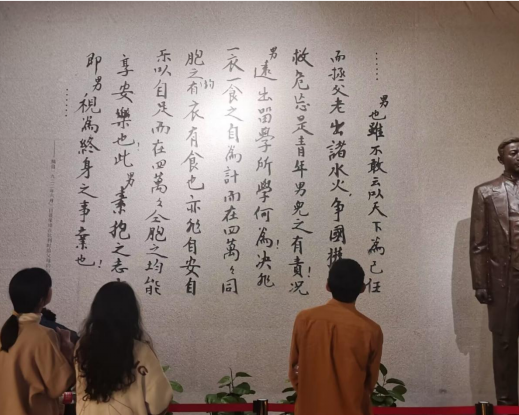 ……男也雖不敢云以天下為己任
而拯父老出諸水火,争國權
救危忘是青年男兒之有責!况
男遠出留學所學何為!决非
一衣一食之自為計而在四萬々同
胞之均有衣有食也亦非自安自
乐以自足而在四萬々仝胞之均能
享安樂也!此男素抱之志
即男視為終身之事業也!
……